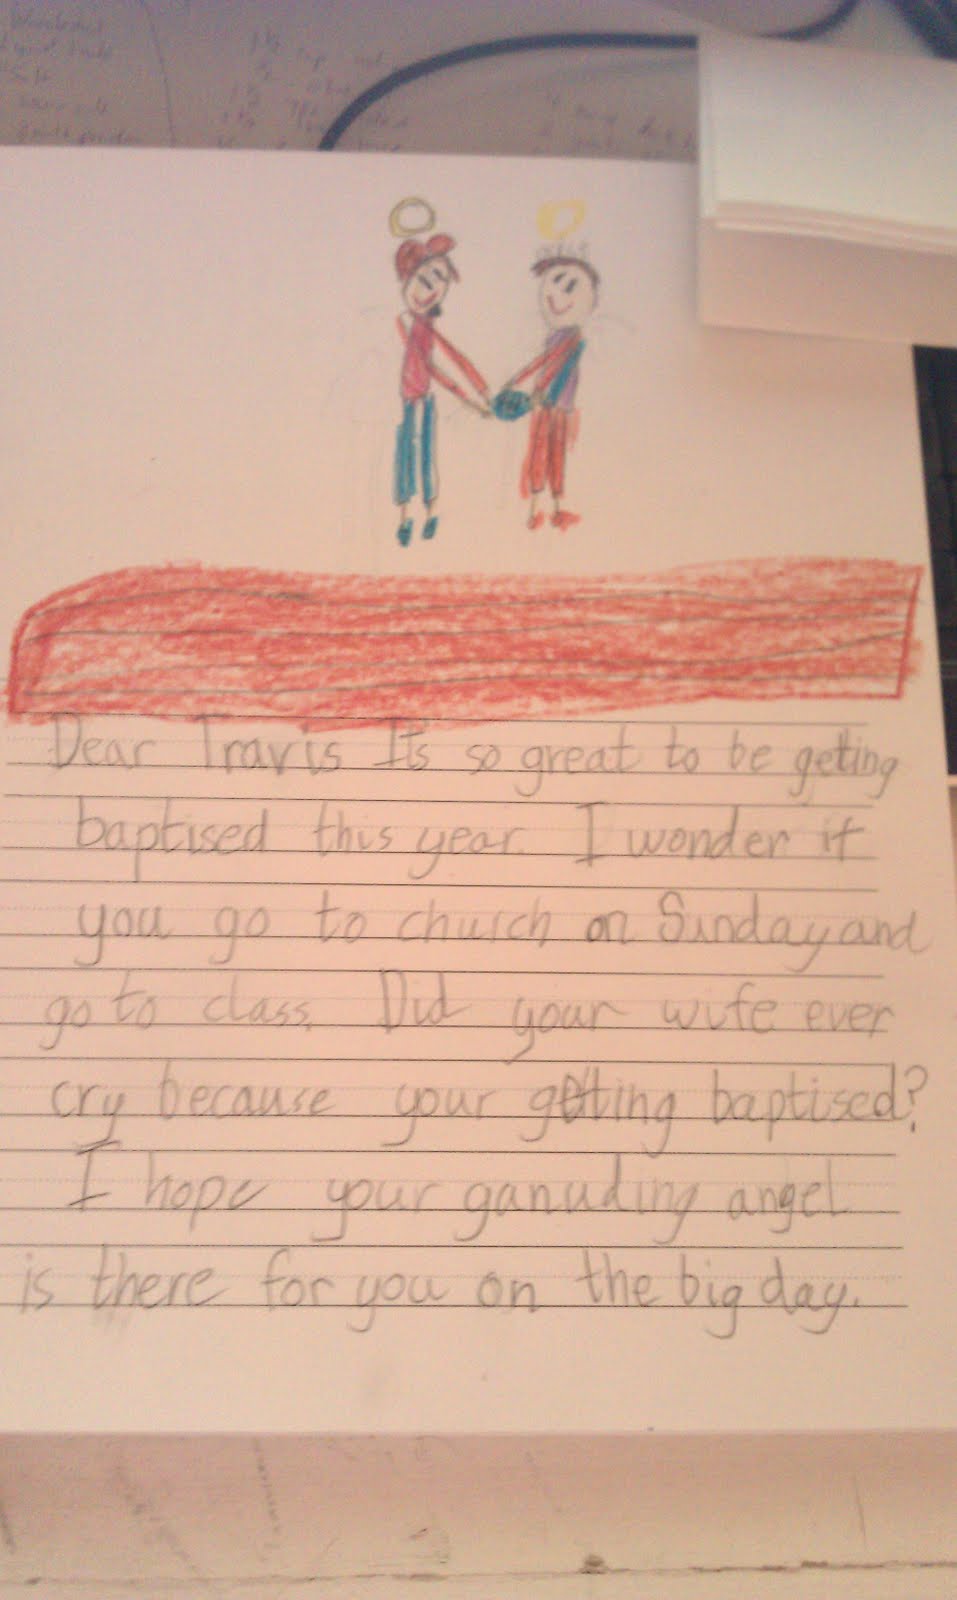 Dear Travis It's so great to be getting
baptised this year. I wonder if
you go to church on Sunday and
go to class. Did your wife ever
cry because your getting baptised?
I hope your ganuding angel
is there for you on the big day.